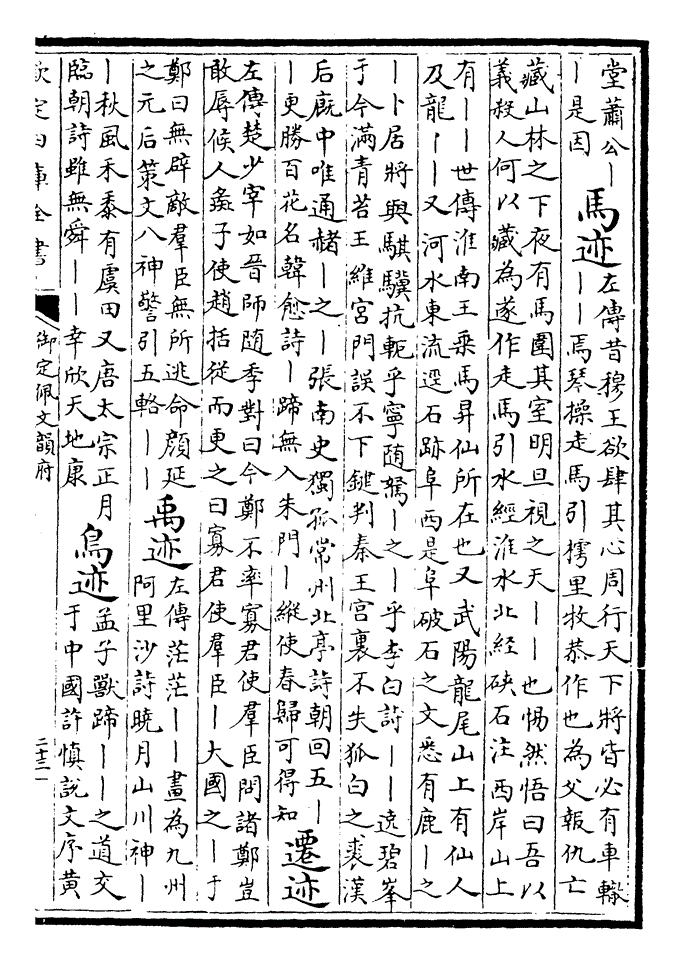 堂蕭公丨
丨是因
馬迹
左傳昔穆王欲肆其心周行天下將皆必有車轍
丨丨焉琴操走馬引樗里牧恭作也為父報仇亡
藏山林之下夜有馬圍其室明旦視之天丨丨也惕然悟曰吾以
義殺人何以藏為遂作走馬引水經淮水北經硤石注西岸山上
有丨丨世傳淮南王乘馬昇仙所在也又武陽龍尾山上有仙人
及龍丨丨又河水東流逕石跡阜西是阜破石之文悉有鹿丨之
丨卜居將與騏驥抗軛乎寧随駑丨之丨乎李白詩丨丨遶碧峯
于今滿青苔王維宮門誤不下鍵判秦王宫裏不失狐白之裘漢
后厩中唯通赭丨之丨張南史獨孤常州北亭詩朝回五丨
丨更勝百花名韓愈詩丨蹄無入朱門丨縱使春歸可得知
遷迹
左傳楚少宰如晉師随季對曰今鄭不率寡君使羣臣問諸鄭豈
敢辱候人彘子使趙括從而更之曰寡君使羣臣丨大國之丨于
鄭曰無辟敵羣臣無所逃命顔延
之元后策文八神警引五輅丨丨
禹迹
左傳茫茫丨丨畫為九州
阿里沙詩曉月山川神丨
丨秋風禾黍有虞田又唐太宗正月
臨朝詩雖無舜丨丨幸欣天地康
鳥迹
孟子獸蹄丨丨之道交
于中國許慎說文序黄
欽定四庫全書
御定佩文韻府
二十三